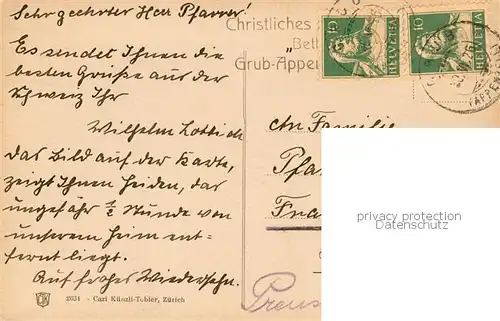 Sehr geehrter Herr Pfarrer!
Es sendet Ihnen die
besten Grüße aus der
Schweiz Ihr
Wilhelm
Das Bild auf der Karte,
zeigt Ihnen Heiden, das
ungefähr ½ Stunde von
unserem Heim ent-
fernt liegt.
Auf frohes Wiedersehn.
2631 - Carl Künzli-Tobler, Zürich
Christliches
Bett
Grub-Appen
10 HELVETIA
HELVETIA 10
An Familie
Pfa
Fra
Preus
privacy protection
Datenschutz